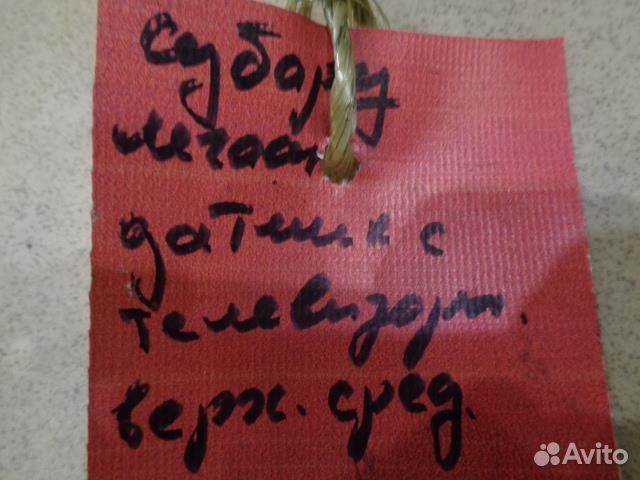 Субару
легаси
датчик с
телевизором.
верх. сред.
Avito